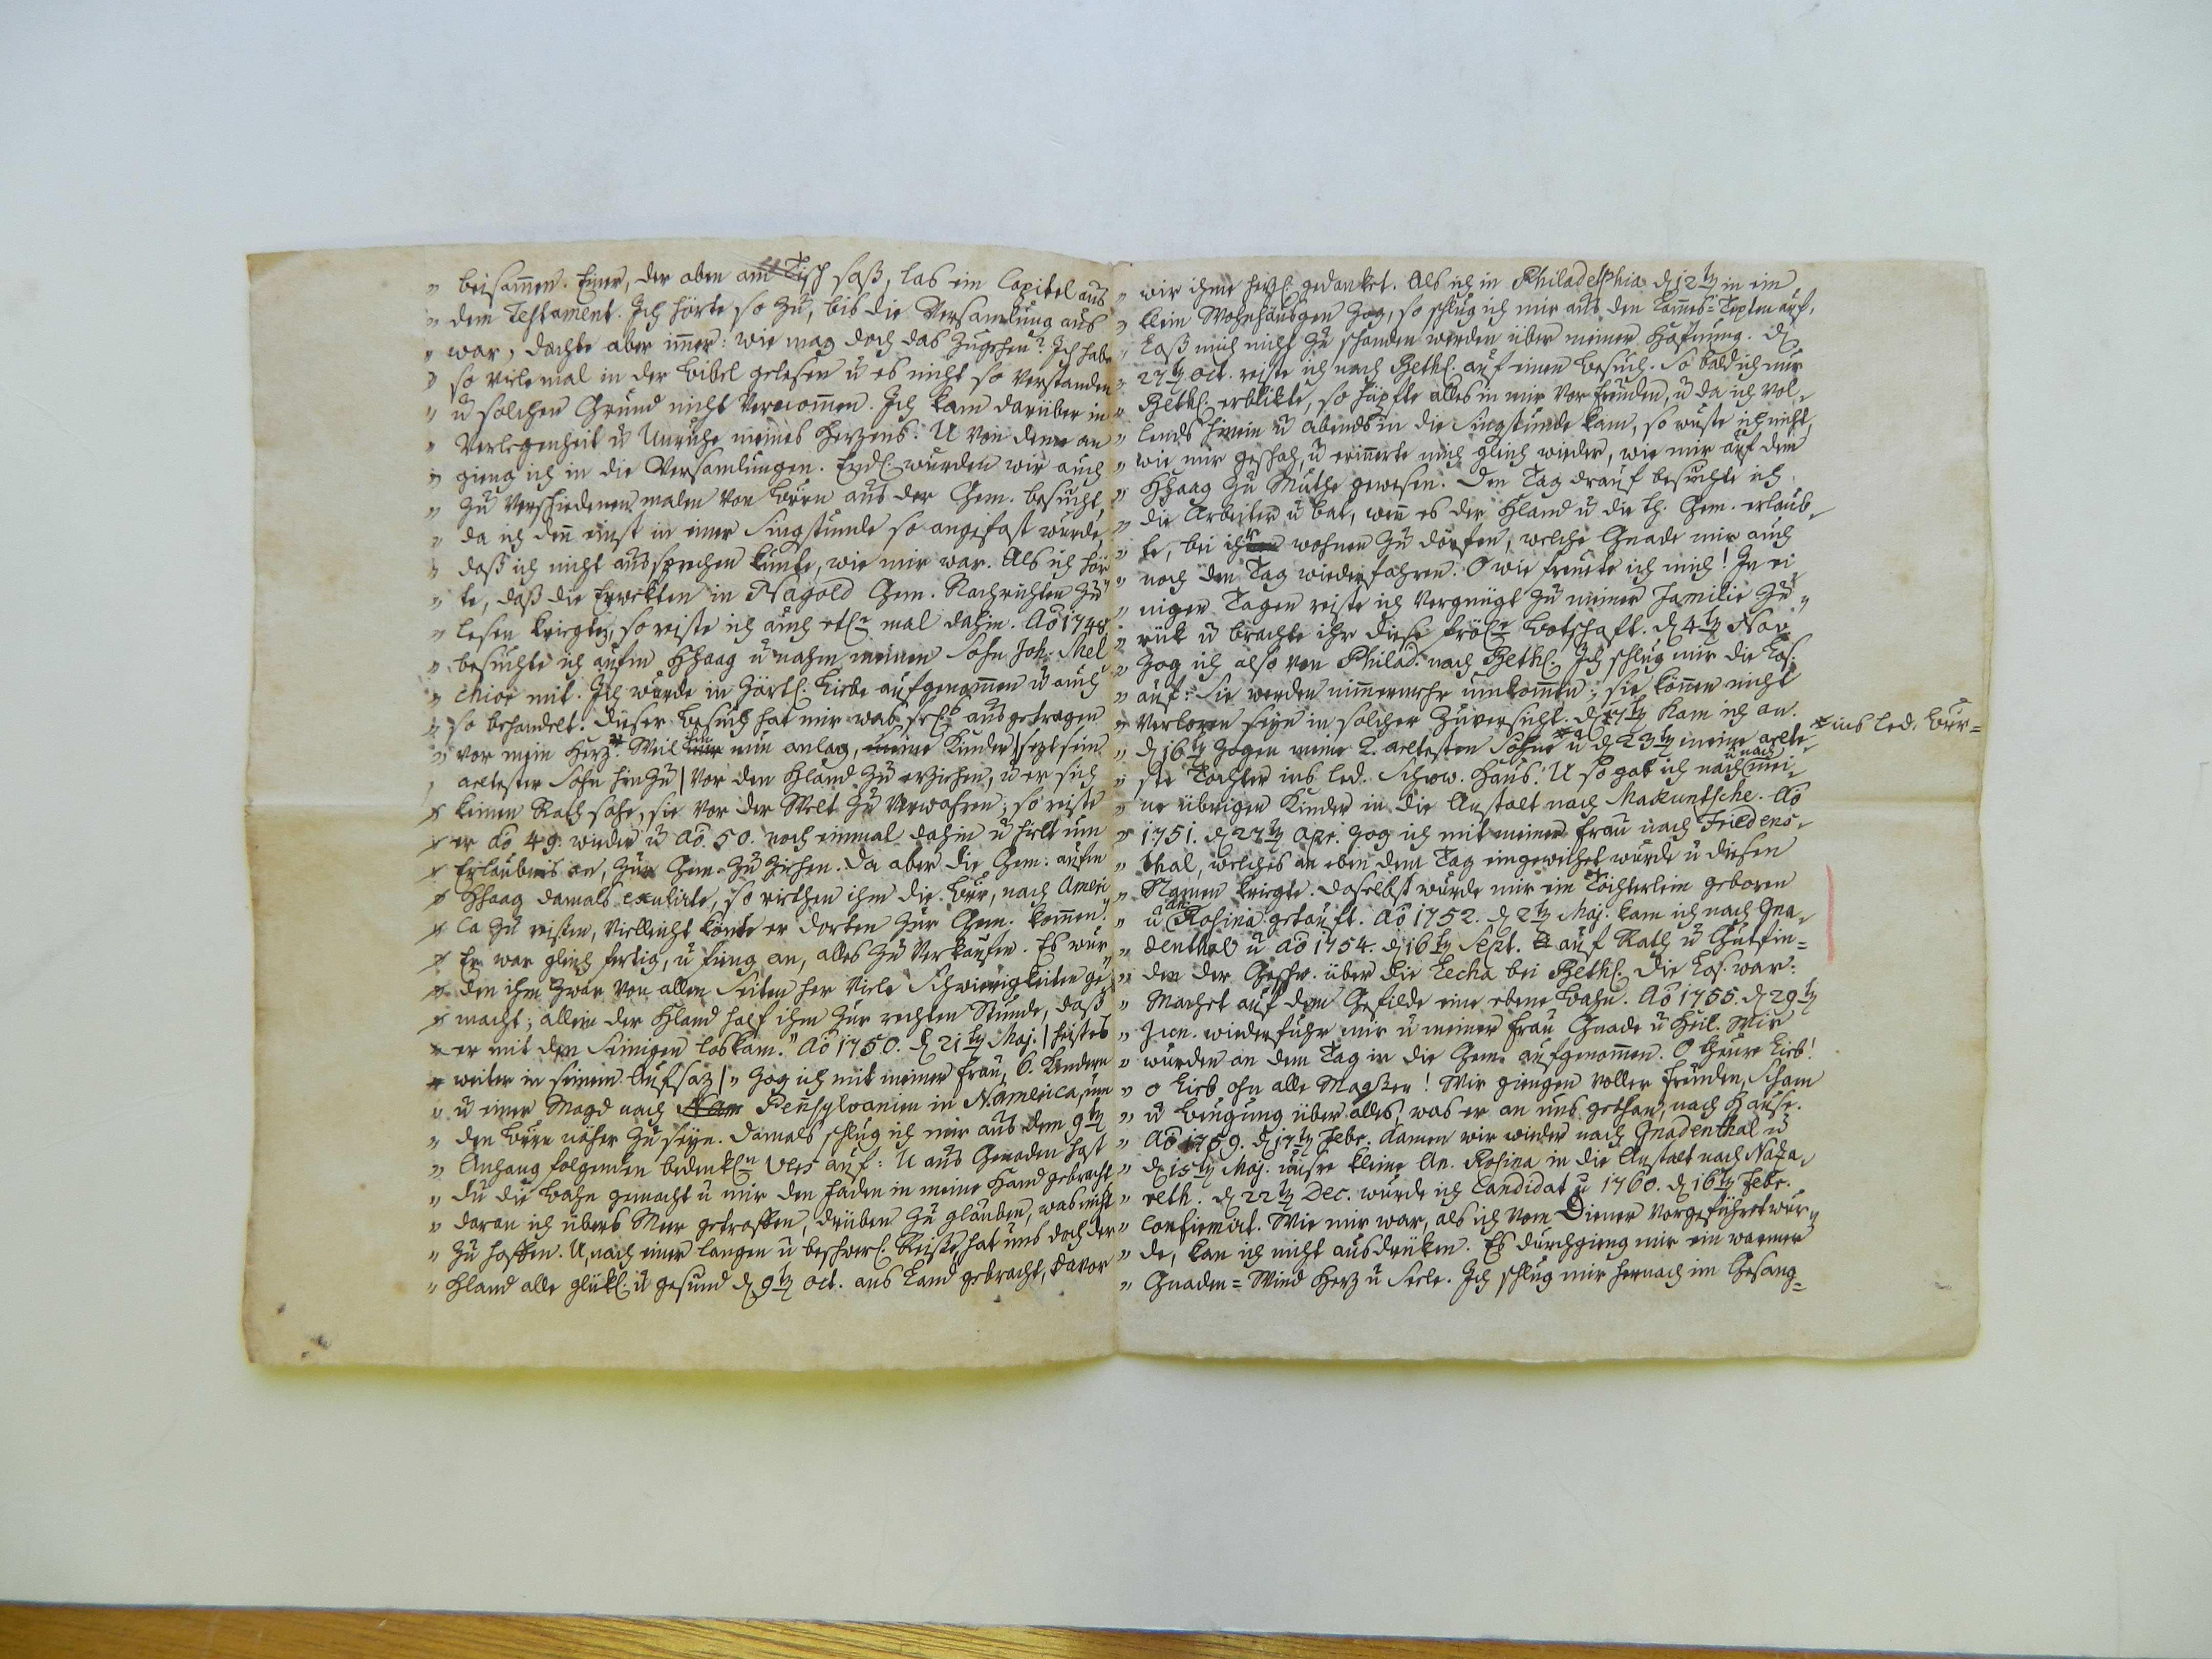 " beisam̄en. Einer, der oben am Tisch saß, las ein Capitel aus
" dem Testament. Ich hörte so zu, bis die Versamlung aus
" war, dachte aber im̄er: wie mag doch das zugehen? Ich habe
" so viele mal in der Bibel gelesen u es nicht so verstanden
" u solchen Grund nicht vernom̄en. Ich kam darüber in
" Verlegenheit u Unruhe meines Herzens. U von denn an
" gieng ich in die Versamlungen. Endl. wurden wir auch
" zu verschiedenen malen von Brrn aus der Gem. besucht,
" da ich den̄ einst in einer Singstunde so angefast wurde,
" daß ich nicht aussprechen kunte, wie mir war. Als ich hör
" te, daß die Erwekten in Nagold Gem. Nachrichten zu
" lesen kriegten, so reiste ich auch etl. mal dahin. Ao 1748
" besuchte ich aufm Hhaag u nahm meinen Sohn Joh. Mel
" chior mit. Ich wurde in zärtl. Liebe aufgenom̄en u auch
" so behandelt. Dieser Besuch hat mir was sel. ausgetragen
" vor mein Herz." Weil ihm nun anlag, seine Kinder | sezt sein
" aeltester Sohn hinzu | vor den Hland zu erziehen, u er sich
" keinen Rath sahe, sie vor der Welt zu verwahren; so reiste
" er Ao 49. wieder u Ao. 50. noch einmal dahin u hielt um
" Erlaubnis an, zur Gem. zu ziehen. Da aber die Gem. aufm
" Hhaag damals exulirte, so riethen ihm die Brr, nach Ameri
" ca zu reisen, vielleicht könte er dorten zur Gem. kommen.
" Er war gleich fertig, u fieng an, alles zu verkaufen. Es wur
" den ihm zwar von allen Seiten her viele Schwierigkeiten ge
" macht; allein der Hland half ihm zur rechten Stunde, daß
" er mit den Seinigen loskam." Ao 1750. d 21ten Maj. | heist es
" weiter in seinem Aufsaz | " zog ich mit meiner Frau, 6. Kindern
" u einer Magd nach Pen̄sylvanien in N.america, um
" den Brrn näher zu seyn. Damals schlug ich mir aus dem 9ten
" Anhang folgenden bedenkln Vers auf: U aus Gnaden hast
" du die Bahn gemacht u mir den Faden in meine Hand gebracht,
" daran ich übers Meer getroffen, drüben zu glauben, was nicht
" zu hoffen. U, nach einer langen u beschwerl. Reise, hat uns doch der
" Hland alle glükl. u gesund d 9ten Oct. ans Land gebracht, davor
" wir ihme herzl. gedanket. Als ich in Philadelphia d 12ten in ein
" klein Wohnhäusgen zog, so schlug ich mir aus den Lam̄es-Texten auf:
" Laß mich nicht zu schanden werden über meiner Hofnung. d
" 27ten Oct. reiste ich nach Bethl. auf einen Besuch. So bald ich nur
" Bethl. erblikte, so hüpfte alles in mir vor Freuden, u da ich vol-
" lends hinein u abends in die Singstunde kam, so wuste ich nicht,
" wie mir geschah, u erin̄erte mich gleich wieder, wie mir auf dem
" Hhaag zu Muthe gewesen. Den Tag drauf besuchte ich
" die Arbeiter u bat, wen̄ es der Hland u die th. Gem. erlaub-
" te, bei ihr wohnen zu dörfen, welche Gnade mir auch
" noch den Tag wiederfahren. O wie freute ich mich! In ei
" nigen Tagen reiste ich vergnügt zu meiner Familie zu-
" rük u brachte ihr diese fröle Botschaft. d 4ten Nov
" zog ich also von Philad. nach Bethl. Ich schlug mir die Los.
" auf: Sie werden nimmermehr umkom̄en; sie kön̄en nicht
" verloren seyn in solcher Zuversicht. d 7ten kam ich an.
" d 16ten zogen meine 2. aeltesten Söhne * u d 23ten meine aelte-
* ins led. Brr=
" ste Tochter ins led. Schw. Haus. U so gab ich nach u nach mei-
" ne übrigen Kinder in die Anstalt nach Makuntsche. Ao
" 1751. d 27ten Apr. zog ich mit meiner Frau nach Friedens-
" thal, welches an eben dem Tag eingeweihet wurde u diesen
" Namen kriegte. Daselbst wurde mir ein Töchterlein geboren
" u An. Rosina getauft. Ao 1752. d 2ten Maj. kam ich nach Gna-
" denthal u Ao 1754. d 16ten Sept. auf Rath u Gutfin=
" den der Geschw. über die Lecha bei Bethl. Die Los. war:
" Machet auf dem Gefilde eine ebene Bahn. Ao 1755. d 29ten
" Jun. wiederfuhr mir u meiner Frau Gnade u Heil. Wir
" wurden an dem Tag in die Gem. aufgenom̄en. O theure Lieb!
" o Lieb ohn alle Maaßen! Wir giengen voller Freuden, Scham
" u Beugung über alles, was er an uns gethan, nach Hause.
" Ao 1759. d 17ten Febr. kamen wir wieder nach Gnadenthal u
" d 15ten Maj. unsre kleine An. Rosina in die Anstalt nach Naza-
" reth. d 22ten Dec. wurde ich Candidat u 1760. d 16ten Febr.
" confirmirt. Wie mir war, als ich vom Diener vorgeführet wur-
" de, kan ich nicht ausdrüken. Es durchgieng mir ein warmer
" Gnaden=Wind Herz u Seele. Ich schlug mir hernach im Gesang=